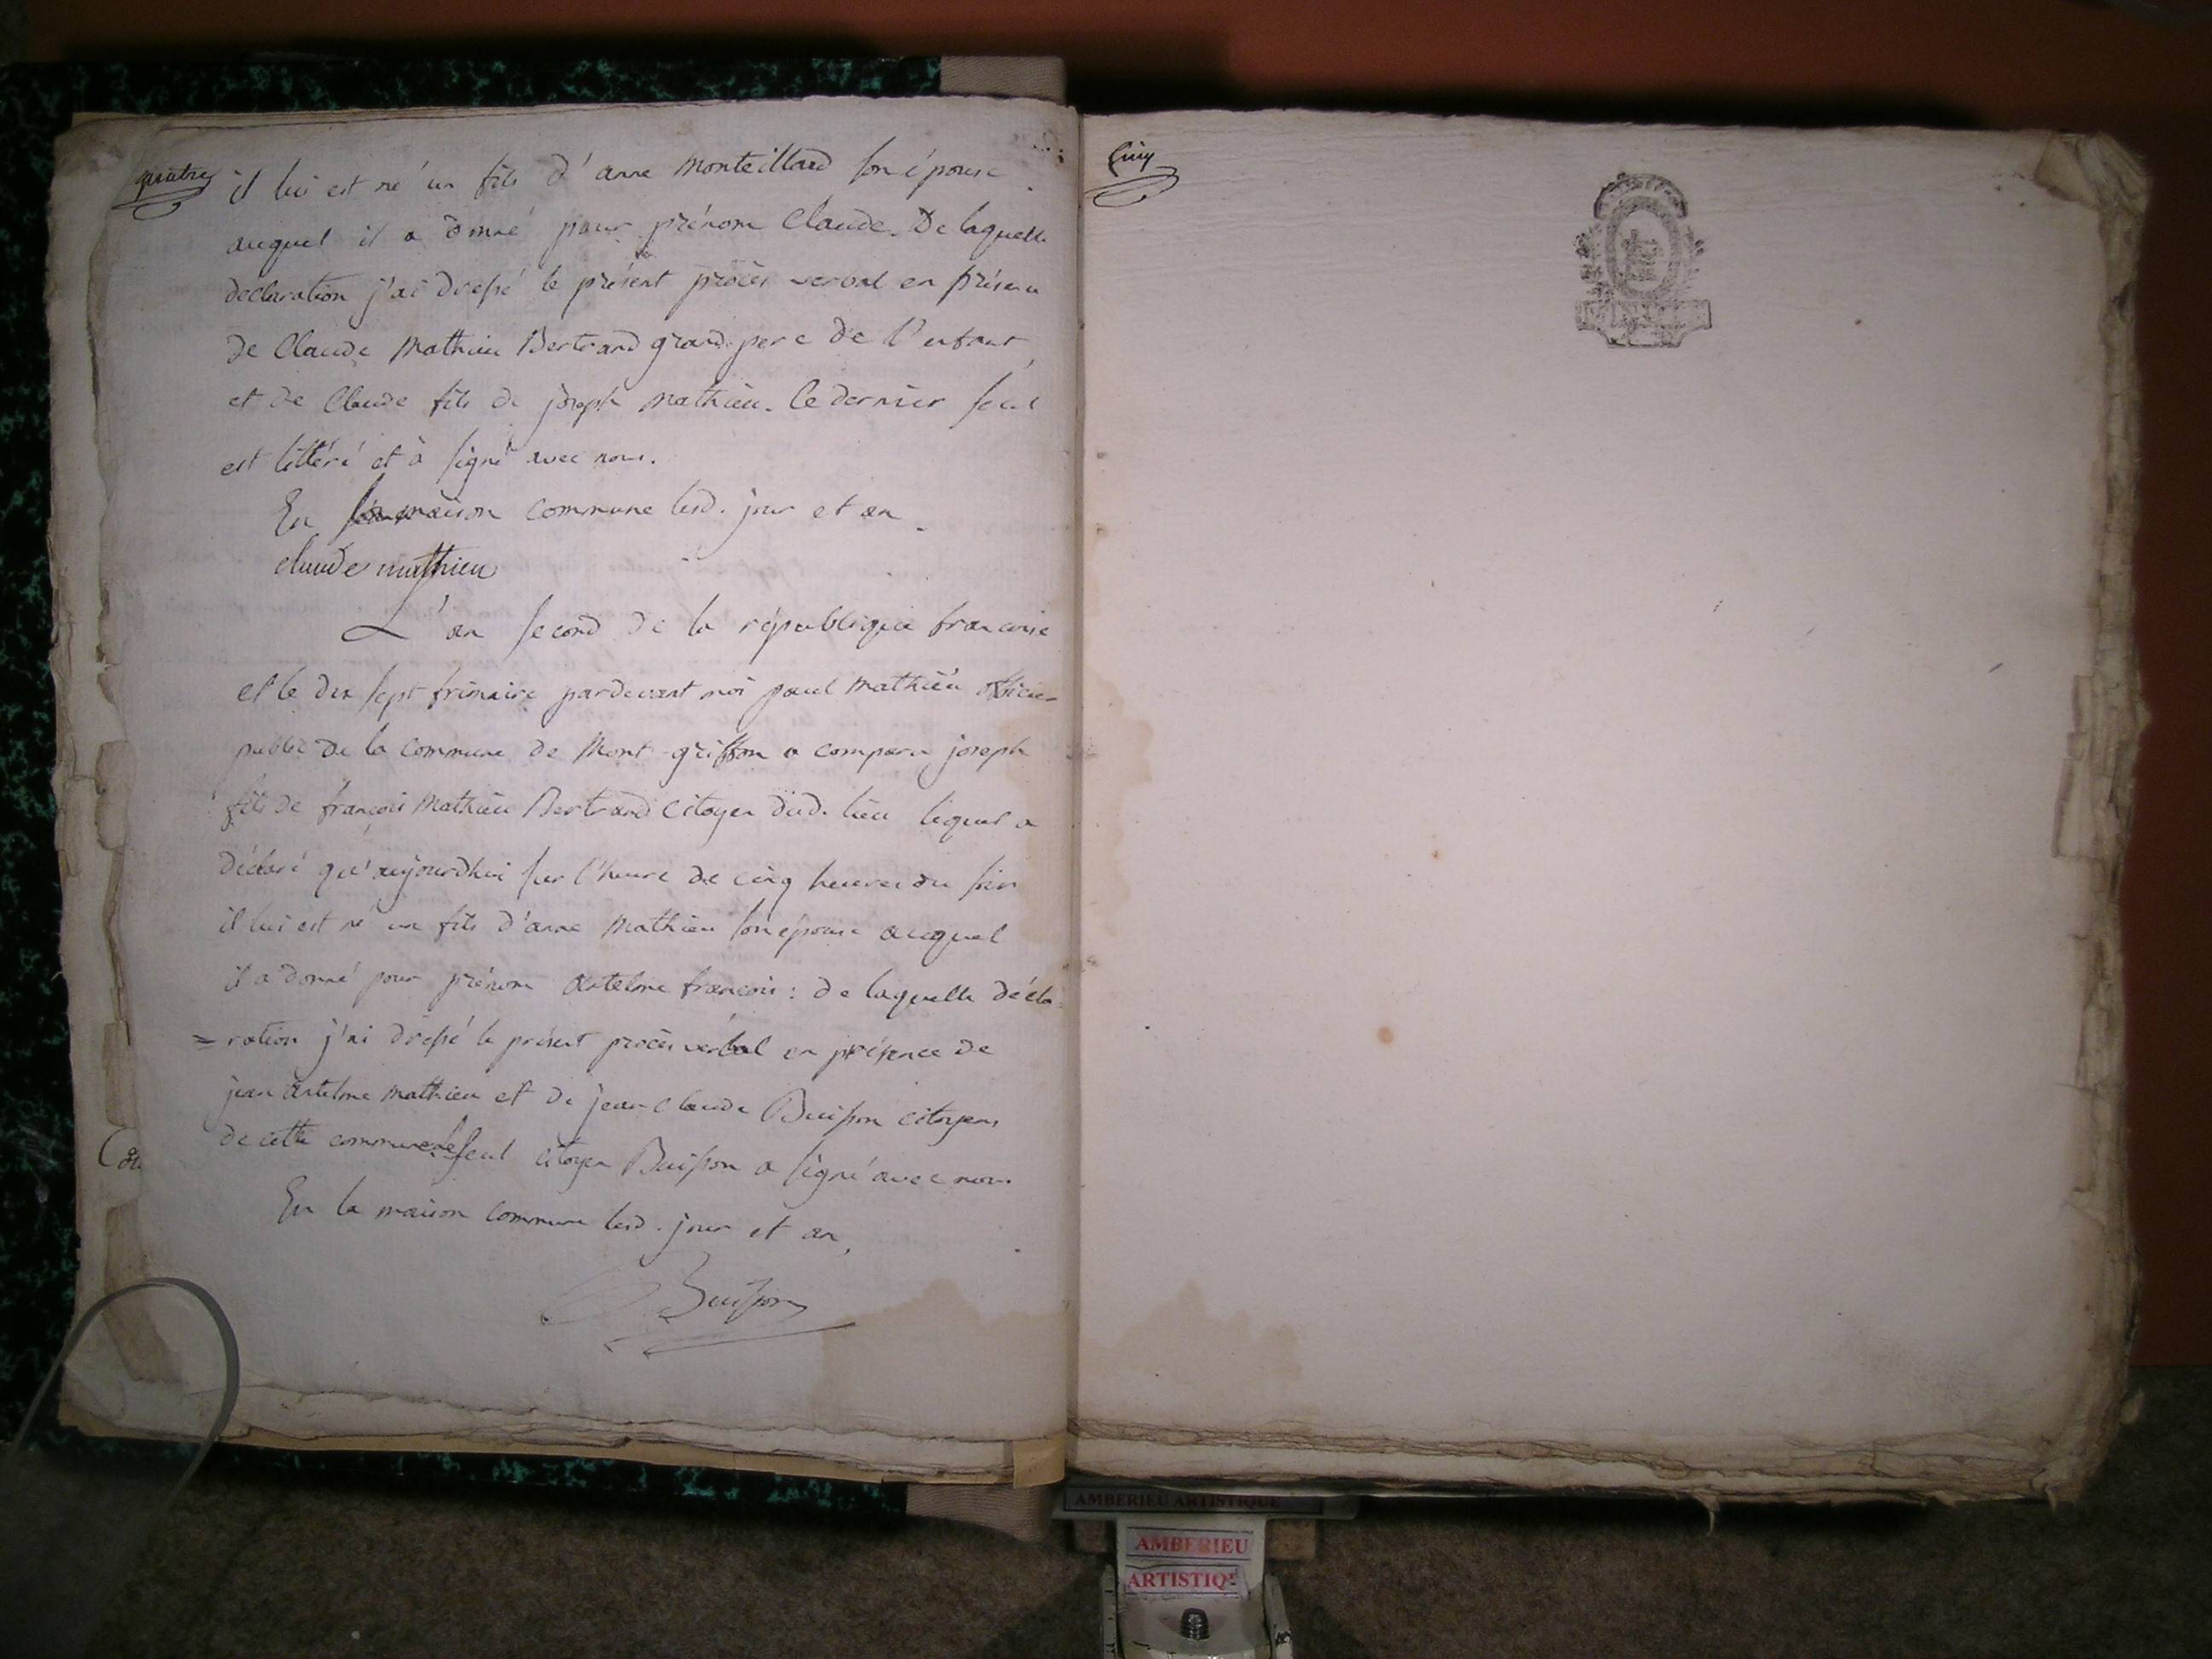 quatre
il lui est né un fils d'anne Monteillard son épouse
auquel il a donné pour prénom Claude. De laquelle
declaration j'ai dressé le présent procès verbal en présence
de Claude Mathieu Bertrand grand-pere de l'enfant,
et de Claude fils de joseph Mathieu. Ce dernier seul
est littéré et à signé avec nous.
En maison commune lesd. jour et an.
claude mathieu
L'an second de la république francoise
et le dix sept frimaire pardevant moi paul Mathieu officier
public de la commune de Mont-griffon a comparu joseph
fils de françois Mathieu Bertrand Citoyen dud. lieu lequel a
déclaré qu'aujourdhui sur l'heure de cinq heures du soir
il lui est né un fils d'anne Mathieu son épouse auquel
il a donné pour prénom Antelme francois : de laquelle décla
= ration j'ai dressé le présent procès verbal en présence de
jean Antelme Mathieu et de jean Claude Buisson citoyens
de cette commune. le seul citoyen Buisson a signé avec nous
En la maison commune lesd. jour et an,
Buisson
Cinq
AMBERIEU ARTISTIQUE
AMBERIEU
ARTISTIQ